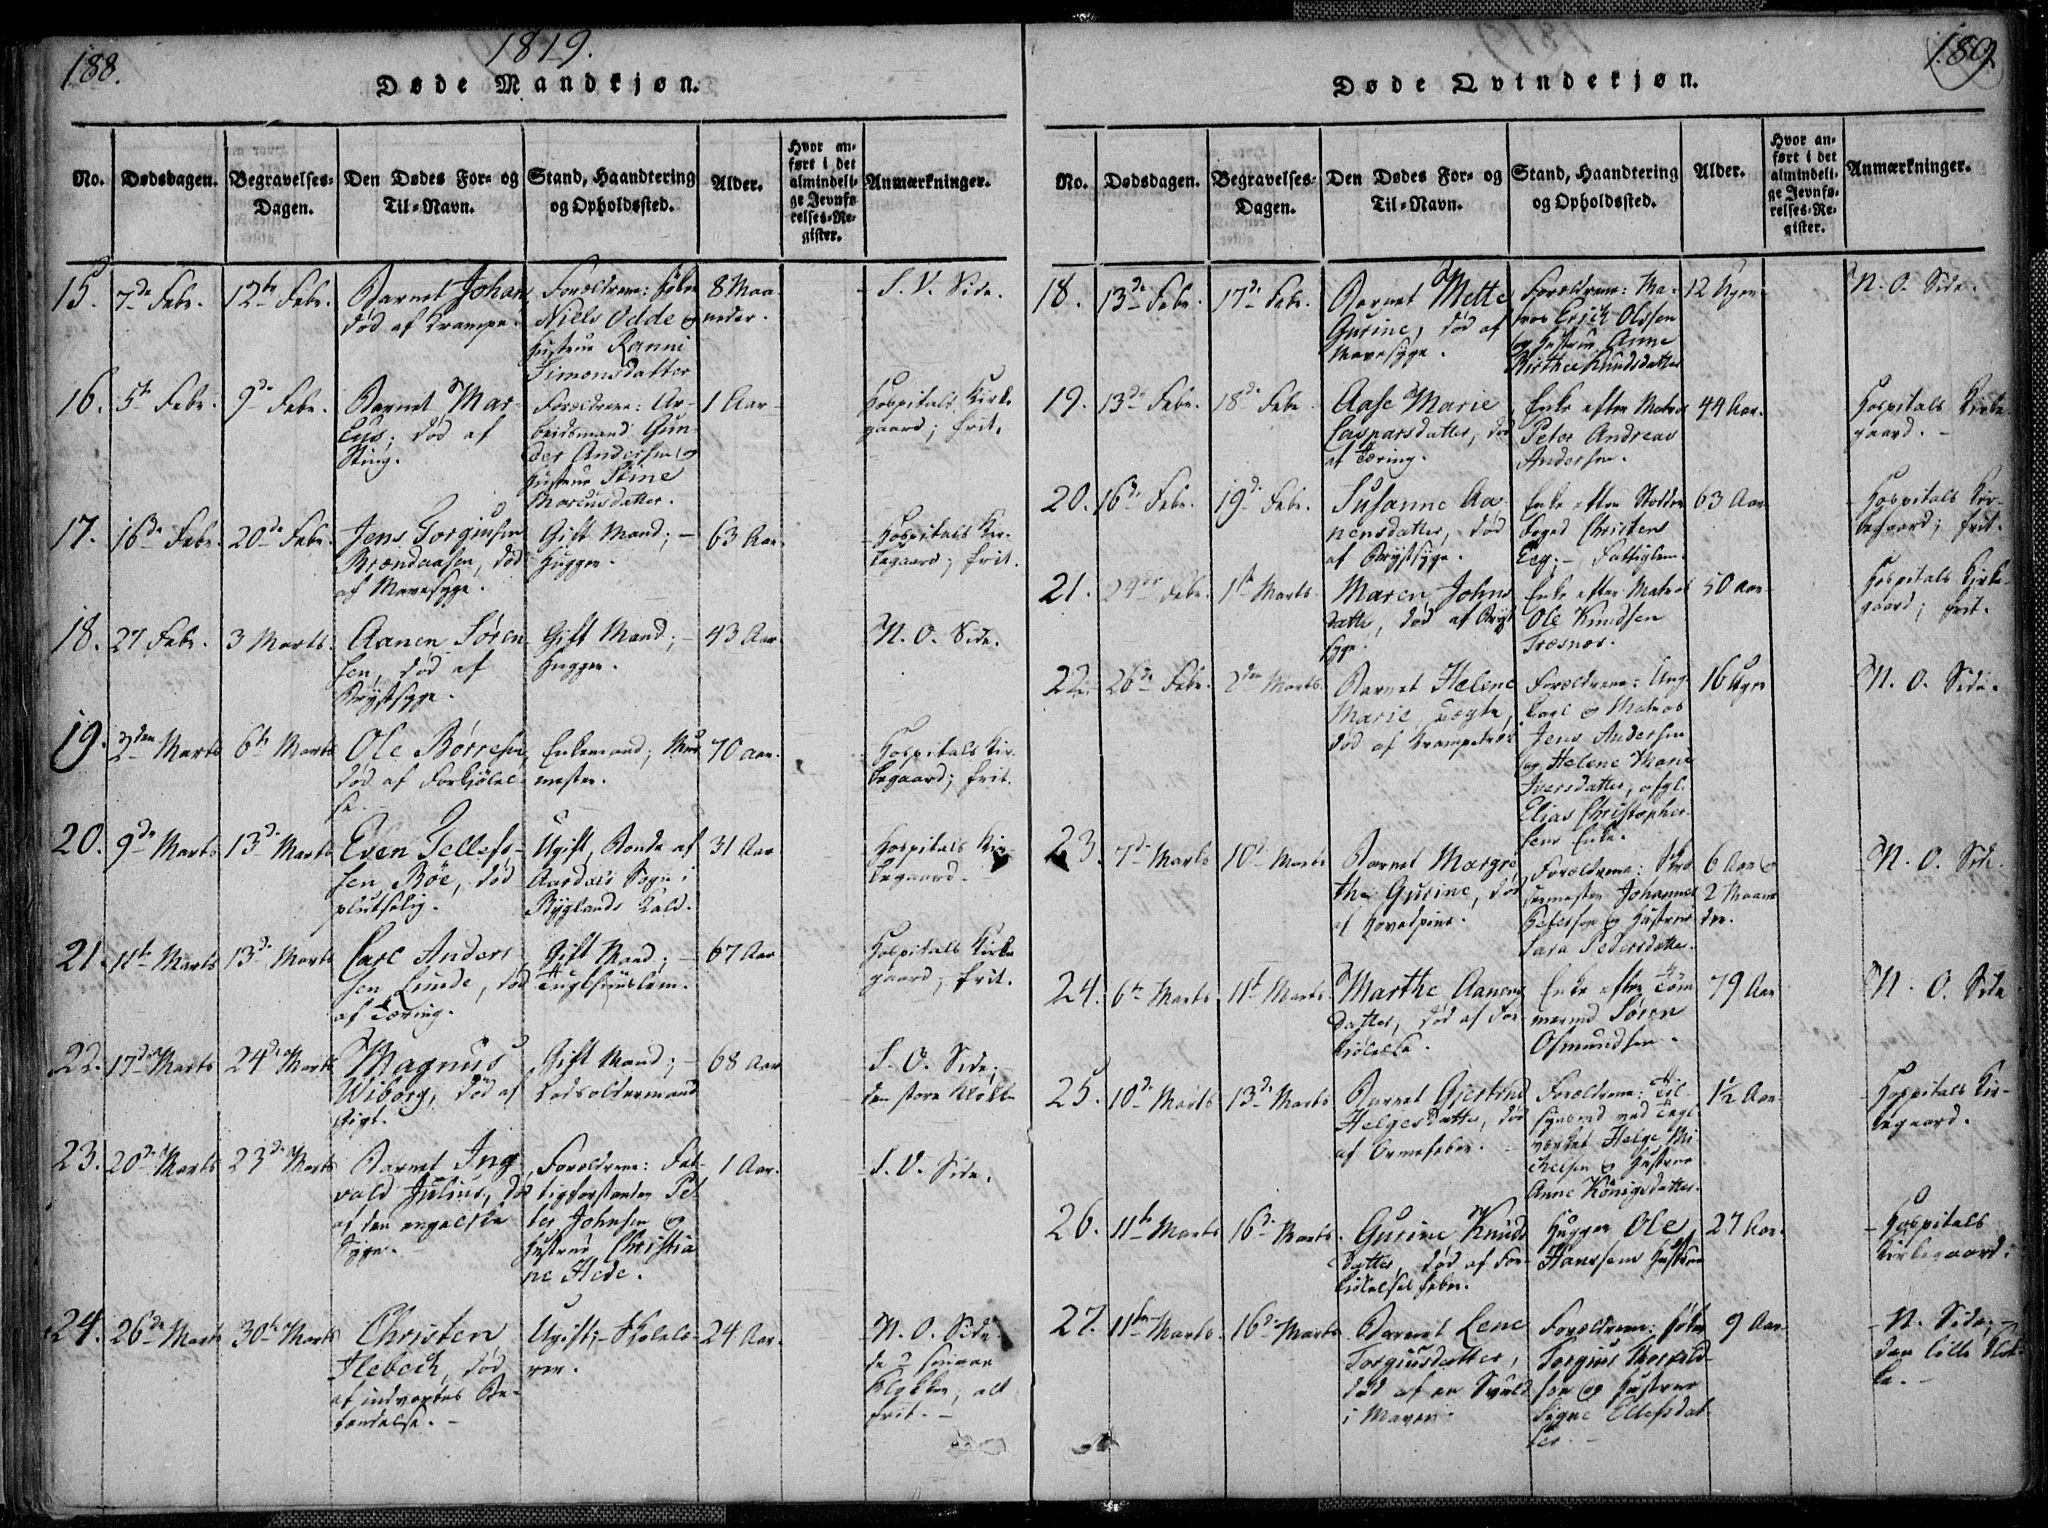 188.
1819.
Døde Mandkjøn.
No.
Dødsdagen.
Begravelses-
Dagen.
Den Dødes For- og
Til-Navn.
Stand, Haandtering
og Opholdssted.
Alder.
Hvor an-
ført i det
almindeli-
ge Jevnfø-
relses-Re-
gister.
Anmærkninger.
15.
7de Febr.
12te Febr.
Barnet Johan,
død af Krampe.
Forældrene:
Niels Odde &
Hustrue Ranni
Simonsdatter
8 Maa-
neder.
S. V. Side.
16.
5te Febr.
9de Febr.
Barnet Mar-
cus; død af
Sting.
Forældrene: Ar-
beidsmand Gun-
der Andersen &
Hustrue Stine
Marcusdatter.
1 Aar
Hospitals Kirke
gaard; frit.
17.
16de Febr.
20de Febr.
Jens Torgiusen
Brændaasen, død
af Mavesyge.
Gift Mand; -
Hugger.
63 Aar
Hospitals Kir-
kegaard; frit.
18.
27 Febr.
3 Marts.
Aanen Søren
sen, død af
Brystsyge.
Gift Mand; -
Hugger.
43 Aar
N. O. Side.
19.
2den Marts
6te Marts
Ole Børresen,
død af Forkjølel-
se.
Enkemand; Mur
mester.
70 Aar.
Hospitals Kir-
kegaard; frit.
20.
9de Marts
13de Marts
Even Tellefs-
sen Boe, død
plutselig.
Ugift, Bonde af
Aardals Sogn i
Byglands Kald.
31 Aar
Hospitals Kir-
kegaard.
21.
11te Marts
13de Marts
Carl Anders
sen Lunde, død
af Tæring.
Gift Mand; -
Tugthuuslem.
67 Aar
Hospitals Kirke
gaard; frit.
22.
17de Marts
24de Marts
Magnus
Wiborg, død af
Gigt.
Gift Mand; -
Lodsoldermand
68 Aar
S. O. Side;
den store Klokke
23.
20de Marts
23de Marts
Barnet Ing
vald Julius, død
af den engelske
Syge.
Forældrene: Fat-
tigforstander Pe-
ter Johnsen &
Hustrue Christia
ne Hede.
1 Aar.
S. V. Side.
24.
26de Marts
30te Marts
Christen
Flebech, død
af indvortes Be-
tændelse. -
Ugift; -
24 Aar.
N. O. Side.
de 2 smaae
Klokker, alt
frit. -
189.
Døde Qvindekjøn.
No.
Dødsdagen.
Begravelses-
Dagen.
Den Dødes For- og
Til-Navn.
Stand, Haandtering
og Opholdssted.
Alder.
Hvor an-
ført i det
almindeli-
ge Jevnfø-
relses-Re-
gister.
Anmærkninger.
18.
13de Febr.
17de Febr.
Barnet Mette
Gurine, død af
Mavesyge.
Forældrene: Ma-
tros Erich Olssen
og Hustrue Anne
Birthe Knudsdatter
12 Uger
N. O. Side.
19.
13de Febr.
18de Febr
Aase Marie
Caspersdatter, død
af Tæring.
Enke efter Matros
Peter Andreas
Andersen.
44 Aar.
Hospitals Kirke
gaard. -
20.
16de Febr.
19de Febr.
Susanne Aa
nensdatter, død
af Brystsyge.
Enke efter
Christen
Eeg; - Fattiglem.
63 Aar
Hospitals Kir-
kegaard; frit.
21.
24de Febr.
1te Marts.
Maren Johns
datter, død af Bryst
syge.
Enke efter Matros
Ole Knudsen
Træsnes.
50 Aar
Hospitals Kirke-
gaard; frit.
22.
26de Febr.
2den Marts
Barnet Helene
Marie
død af Krampetræk
Forældrene: Ung
karl & Matros
Jens Andersen
og Helene Marie
Iversdatter, afgl.
Elias Christopher
sens Enke.
16 Uger
N. O. Side.
23.
7de Marts
10de Marts
Barnet Margre
the Gurine, død
af Hovedpine.
Forældrene: Skræ
dermester Johannes
Petersen & Hustrue
Sara Pedersdatter.
6 Aar &
2 Maane
der.
N. O. Side.
24.
6te Marts.
11te Marts.
Marthe Aanens
datter, død af For-
kiølelse.
Enke efter Tøm
mermd Søren
Osmundsen.
79 Aar
N. O. Side
25.
10de Marts
13de Marts
Barnet Gjertrud
Helgesdatter, død
af Ormefeber.
Forældrene: Til-
synsmd ved Tegl-
værket Helge Mi
chelsen & Hustrue
Anne Königsdatter.
1½ Aar.
Hospitals Kir-
kegaard.
26.
11te Marts
16de Marts
Gurine Knuds
datter, død af For-
kiølelsesfeber.
Hugger Ole
Hanssens Hustrue
27 Aar.
Hospitals
Kirkegaard.
27.
11te Marts.
16de Marts
Barnet Lene
Torgiusdatter,
død af en Svulst
i Maven.
Forældrene:
Torgius Thorvald-
sen og Hustrue
Signe Ellefsdat-
ter. -
9 Aar
N. Side; -
den lille Klok-
ke. -